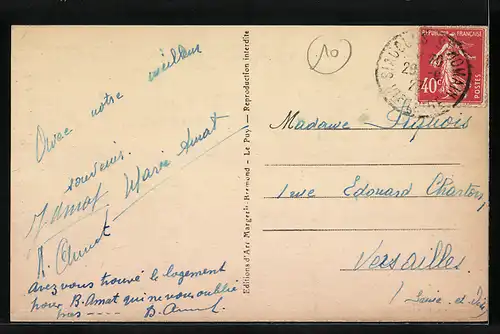 Avec notre meilleur
souvenir.
J Amat Marie Amat
A. Amat
avez vous trouvé le logement
pour B. Amat qui ne vous oublie
pas ---- B. Amat
Editions d'Art Margerit-Bremond - Le Puy - Reproduction interdite
10
REPUBLIQUE FRANÇAISE
40c
POSTES
29
Madame
1 rue Edouard Charton,
Versailles
(Seine et Oise)